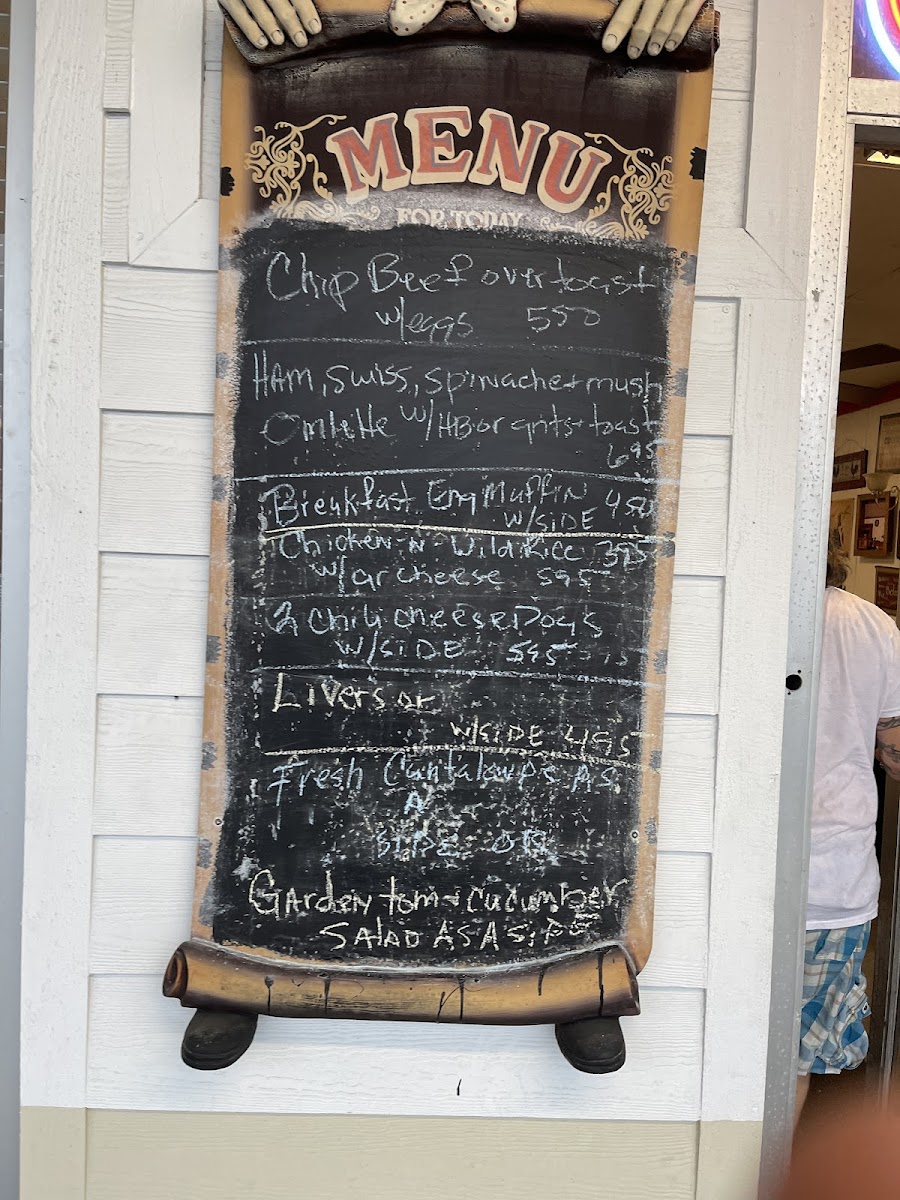 MENU
FOR TODAY
Chip Beef over toast
w/eggs 550
HAM, Swiss, Spinache + mush
Omlette w/HB or grits + toast
695
Breakfast Eng Muffin 450
w/SIDE
Chicken-N-Wild Rice 395
w/gr cheese 595
2 chili cheese Dogs
w/SIDE 595
Livers or
w/SIDE 495
Fresh Cantalowpe AS
A
SIDE OR
GARden tom + cucumber
SALAD AS A SiDE